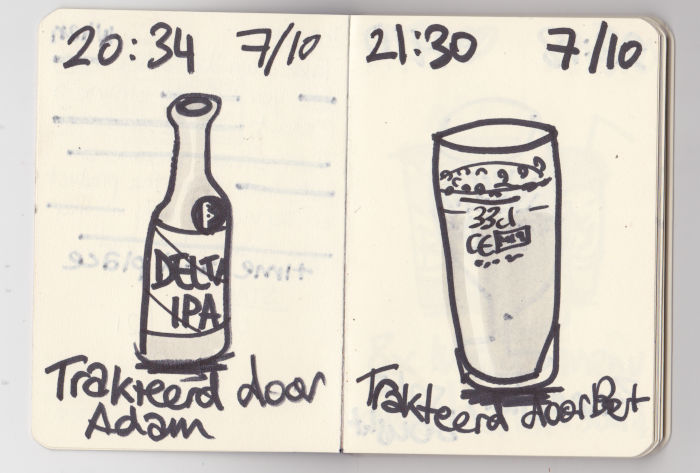 20:34 7/10
DELTA
IPA
Trakteerd door
Adam
21:30 7/10
33cl
CE
Trakteerd door Bert
time place